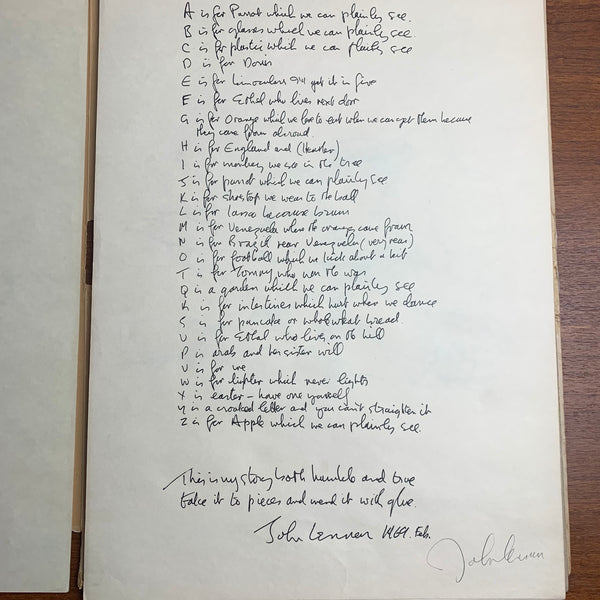 A is for Parrot which we can plainly see.
B is for glasses which we can plainly see
C is for plastic which we can plainly see
D is for Doris
E is for binoculars I'll get it in five
F is for Ethel who lives next door
G is for Orange which we love to eat when we can get them because
they come from abroad.
H is for England and (Heather)
I is for monkey we see in the tree
J is for parrot which we can plainly see
K is for shoestop we wear to the ball
L is for Lassa because brown
M is for Venezuela where the oranges come from
N is for Brazil near Venezuela (very near)
O is for football which we kick about a bit
T is for Tommy who won the war
Q is a garden which we can plainly see
R is for intestines which hurt when we dance
S is for pancake or whole wheat bread.
U is for Ethel who lives on the hill
P is arab and her sister will
V is for me
W is for lighter which never lights
X is easter - have one yourself
Y is a crooked letter and you can't straighten it
Z is for Apple which we can plainly see.
This is my story both humble and true
take it to pieces and mend it with glue.
John Lennon 1969. Feb.
John Lennon